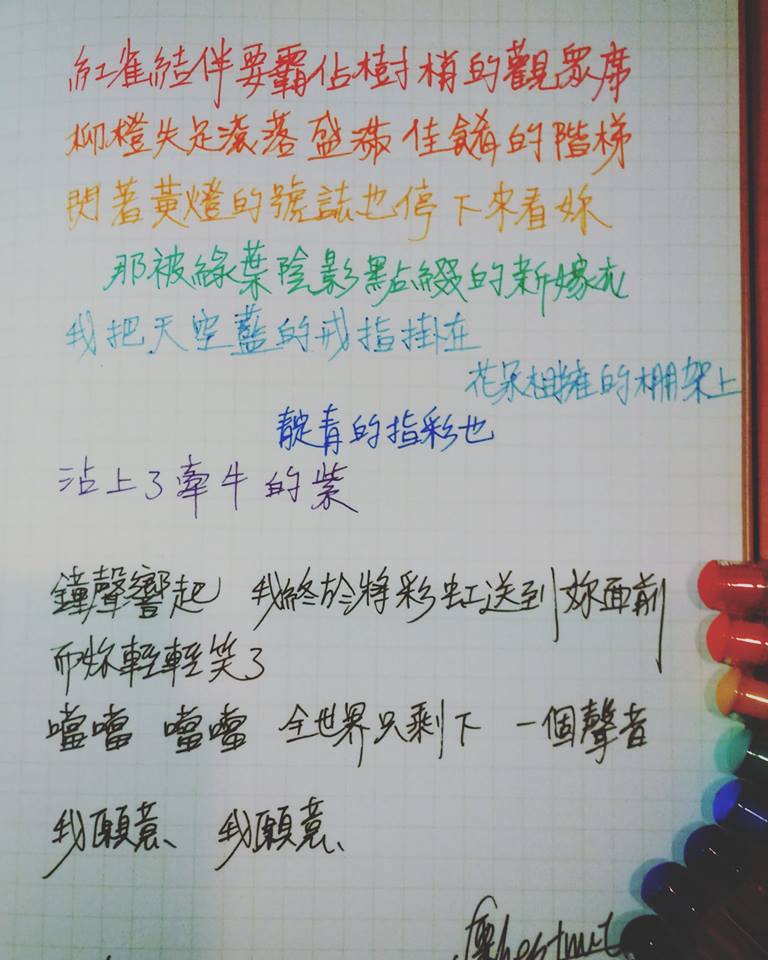 紅雀結伴要霸佔樹梢的觀眾席
柳橙失足滾落盛滿佳餚的階梯
閃著黃燈的號誌也停下來看妳
那被綠葉陰影點綴的新嫁衣
我把天空藍的戒指掛在
花朵相擁的棚架上
靛青的指彩也
沾上了牽牛的紫
鐘聲響起 我終於將彩虹送到妳面前
而妳輕輕笑了
噹噹 噹噹 全世界只剩下 一個聲音
我願意、我願意、